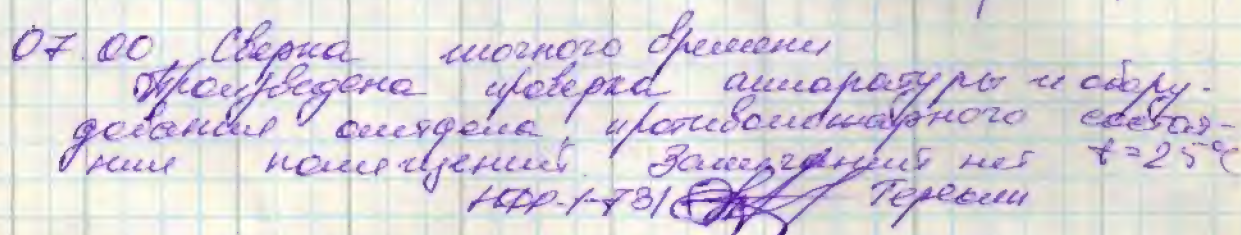 07.00 Сверка точного времени
Произведена проверка аппаратуры и обору-
дования, противопожарного состоя-
ния помещений. Замечаний нет t=25°C